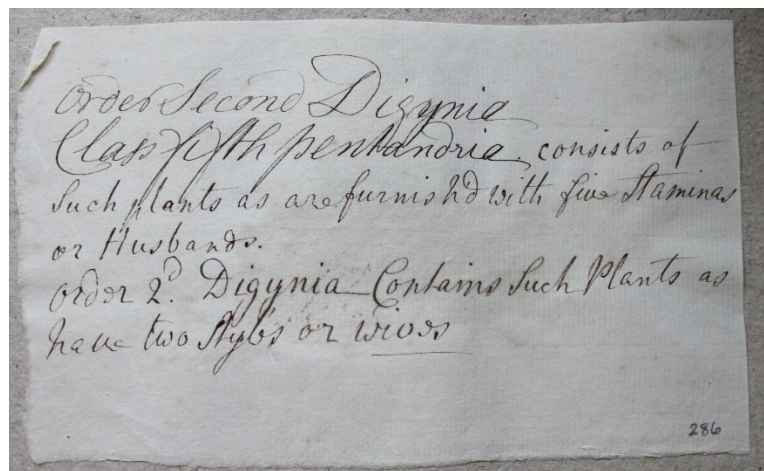 Order Second Digynia
Class fifth pentandria consists of
Such plants as are furnish'd with five Staminas
or Husbands.
Order 2d. Digynia Contains Such Plants as
have two Styles or wives
286